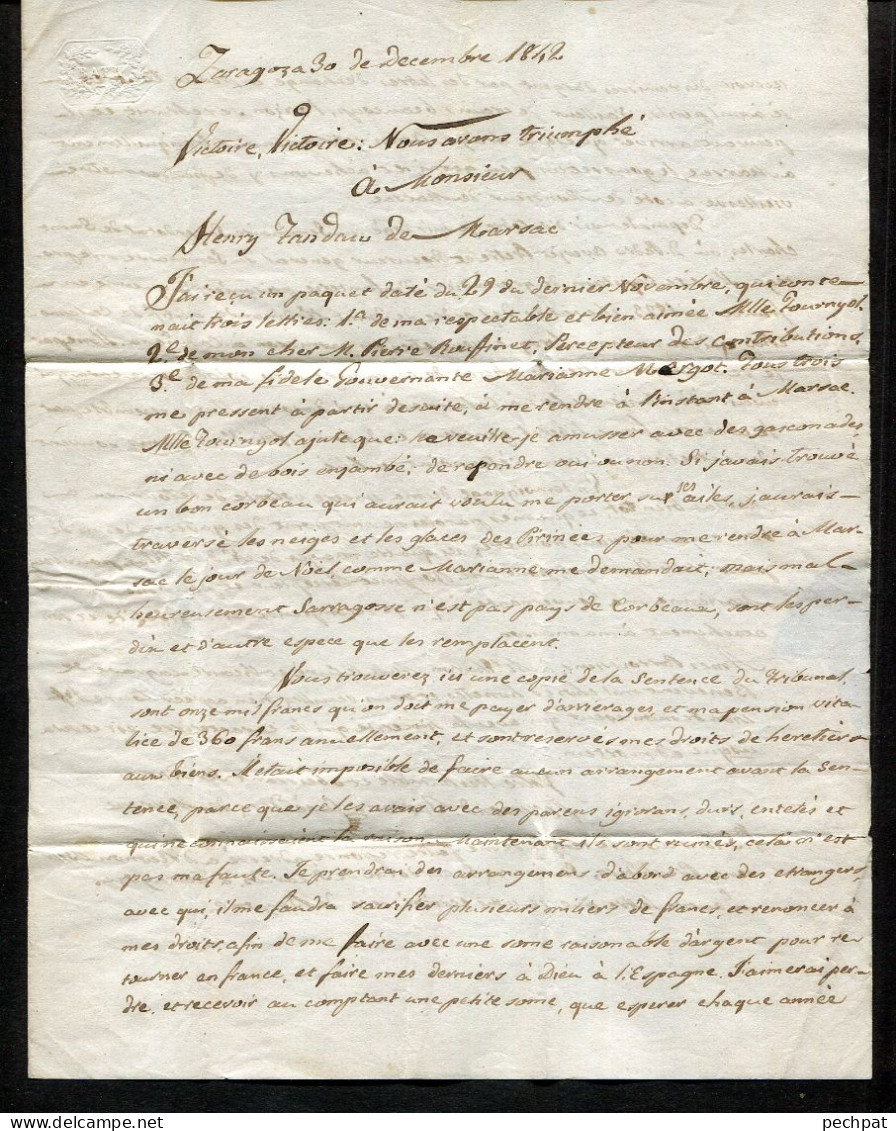 Zaragoza 30 de Decembre 1842
Victoire, Victoire: Nous avons triumphé
à Monsieur
Henry Tandau de Marsac
J'ai reçu un paquet daté du 29 du dernier Novembre, qui conte-
nait trois lettres: 1.ª de ma respectable et bien aimée Mlle Tournyol.
2.e de mon cher M. Pierre Rouffinet, Percepteur des contributions.
3.e de ma fidele Gouvernante Marianne Mergot. Tous trois
me pressent à partir desuite, à me rendre à l'instant à Marsac.
Mlle Tournyol ajute que: ne veuille-je amusser avec des gasconades,
ni avec de bois enjambé, de repondre oui ou non. Si j'avais trouvé
un bon corbeau qui aurait voulu me porter sur ses ailes, j'aurais
traversé les neiges et les glaces des Pirineés pour me rendre à Mar-
sac le jour de Noël comme Marianne me demandait; mais mal-
heureusement Sarragosse n'est pas pays de Corbeaux, sont les per-
dix et d'autre espece que les remplacent.
Vous trouverez ici une copie de la Sentence du Tribunal.
sont onze mil francs qu'on doit me payer d'arrierages et ma pension vita-
lice de 360 frans annuellement, et sont reservés mes droits de heretier
aux biens. M'etait imposible de faire aucun arrangement avant la Sen-
tence, parce que je les avais avec des parens ignorans, durs, entetés et
qui ne connaissaient la raison. Maintenant ils sont ruinés, cela n'est
pas ma faute. Je prendrai des arrangemens d'abord avec des etrangers,
avec qui, il me faudra sacrifier plusieurs miliers de francs, et renoncer à
mes droits, afin de me faire avec une some raisonable d'argent pour re
tourner en france, et faire mes derniers à Dieu à l'Espagne. J'aimerai per-
dre, et recevoir au comptant une petite some, que esperer chaque année
pechpat